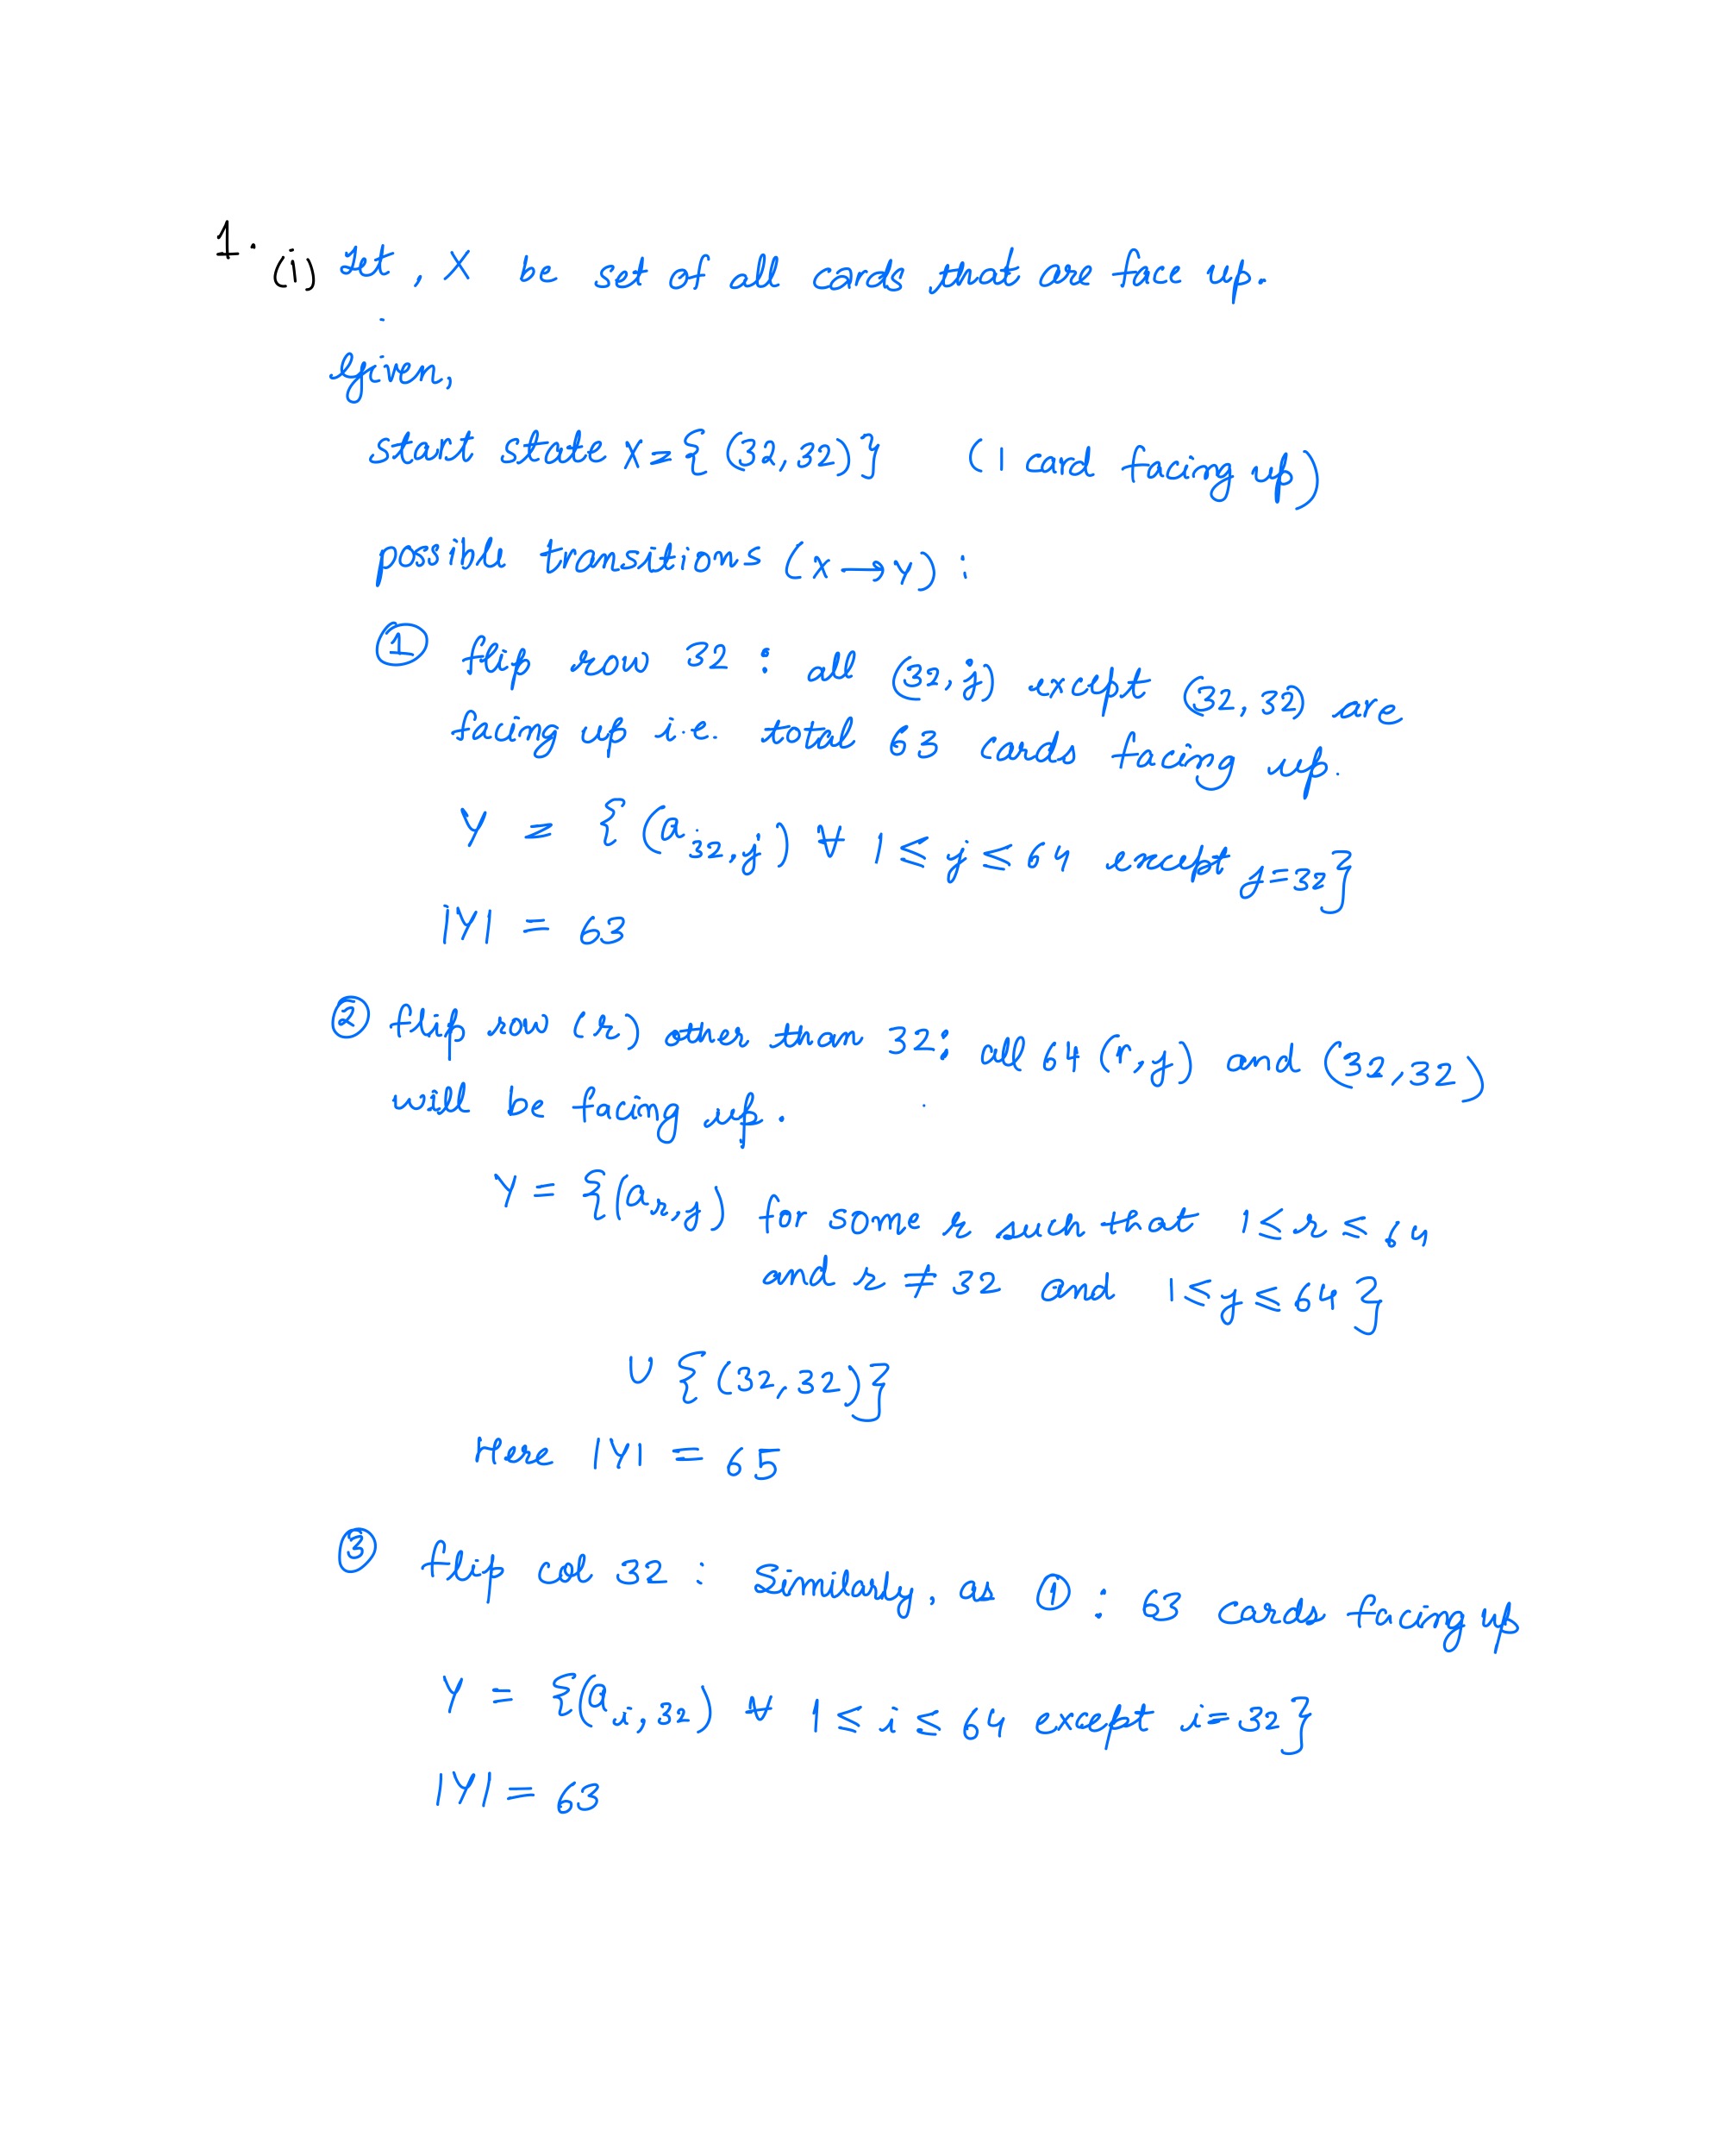 1. (i) Let, X be set of all cards that are face up.
Given,
start state X = { (32,32)} (1 card facing up)
possible transitions (X → Y) :
① flip row 32 : all (32,j) except (32,32) are
facing up i.e. total 63 cards facing up.
Y = { (a_{32,j}) ∀ 1 ≤ j ≤ 64 except j=32}
|Y| = 63
② flip row (r) other than 32: all 64 (r,j) and (32,32)
will be facing up.
Y = {(a_{r,j}) for some r such that 1 ≤ r ≤ 64
and r ≠ 32 and 1 ≤ j ≤ 64 }
∪ { (32,32)}
Here |Y| = 65
③ flip col 32 : Similarly, as ① : 63 cards facing up
Y = {(a_{i,32}) ∀ 1 ≤ i ≤ 64 except i=32}
|Y| = 63